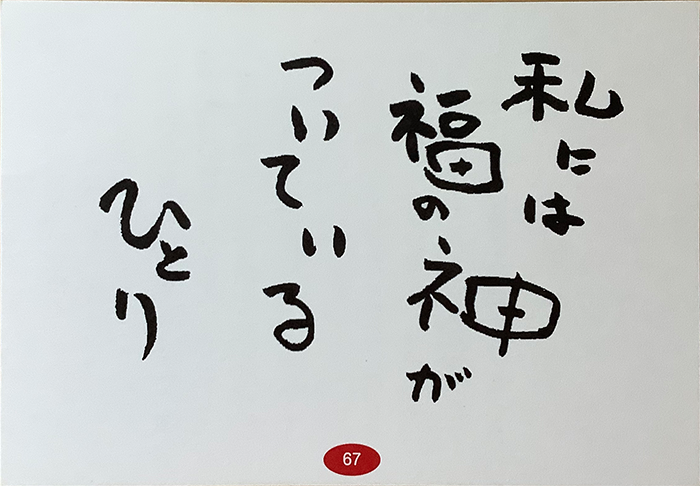 私には
福の神が
ついている
ひとり
67